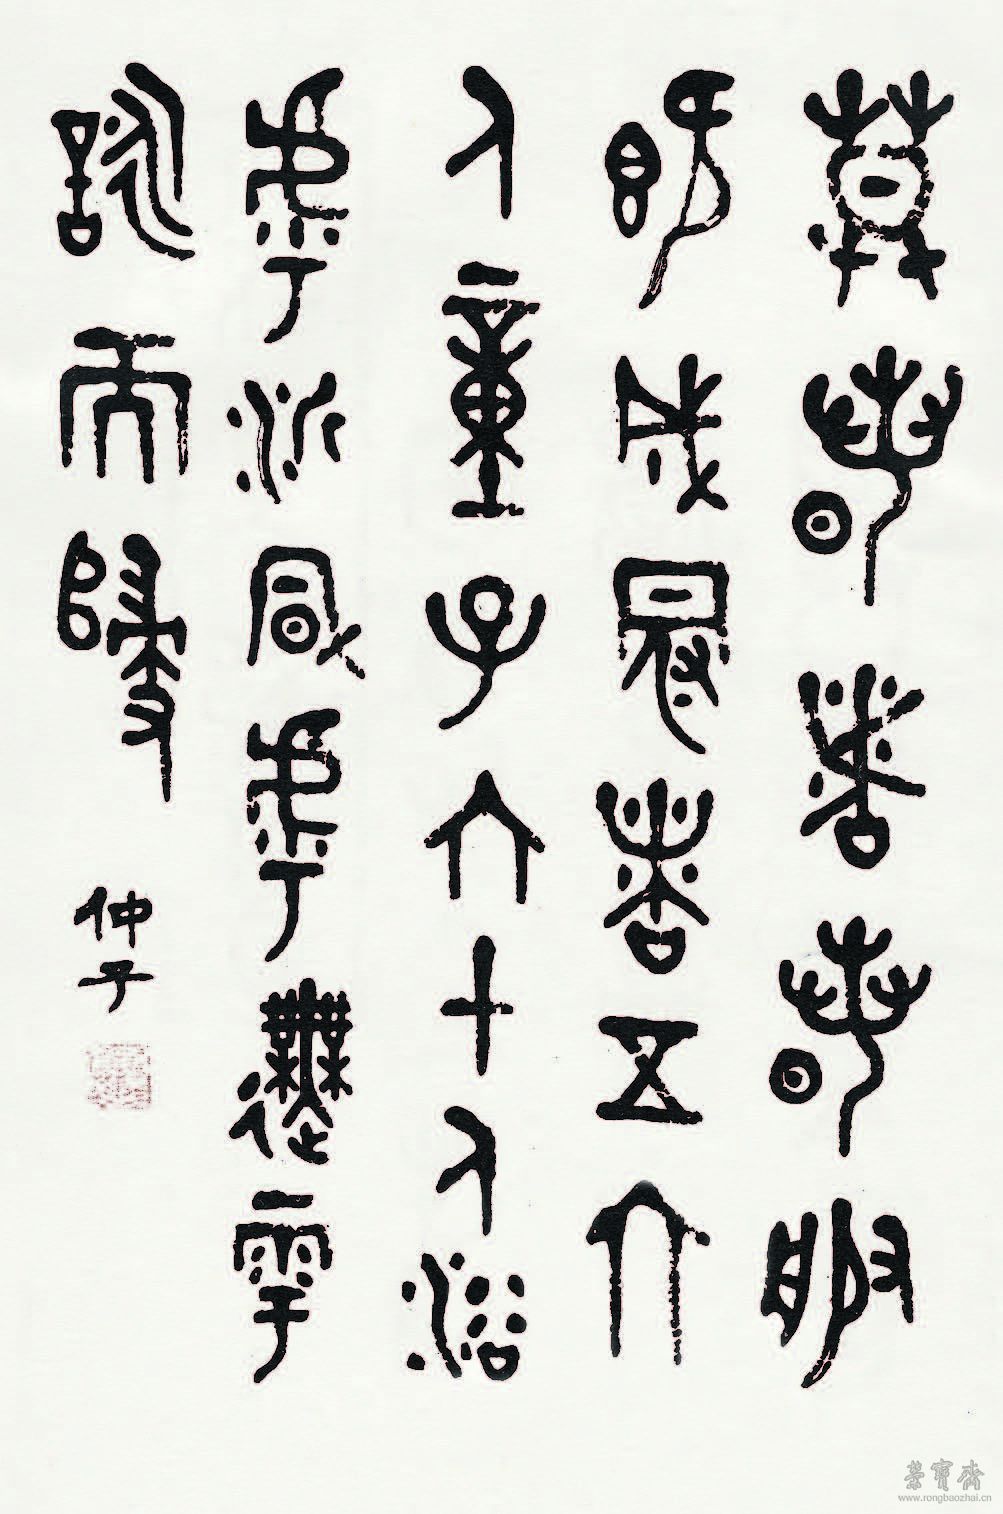 莫春者春服
既成冠者五六
人童子六七人浴
乎沂風乎舞雩
詠而歸
仲子
榮寶齋
www.rongbaozhai.cn